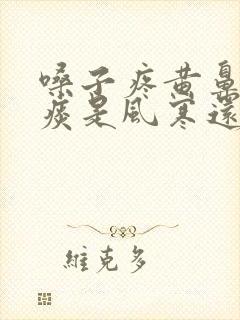 嗓子疼黄鼻
痰是風寒還
維克多